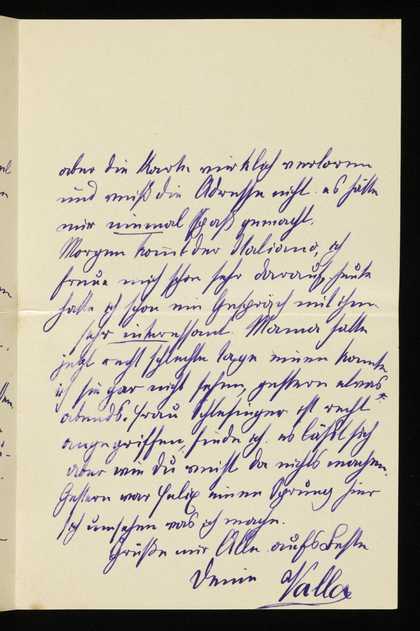 aber die Karte wirklich verloren
und weiß die Adresse nicht. es hätte
mir einmal Spaß gemacht.
Morgen kommt der Italiano, ich
freue mich schon sehr darauf, heute
hatte ich schon ein Gespräch mit ihm
sehr interessant. Mama hatte
jetzt recht schlechte Tage einen konnte
ich sie gar nicht sehen, gestern etwas
abends. Frau Schlesinger ist recht
angegriffen, finde ich. es läßt sich
aber wie Du weißt da nichts machen.
Gestern war Felix einen Sprung hier
sich umsehen was ich mache.
Grüße mir Alle aufs Beste
Deine Valla